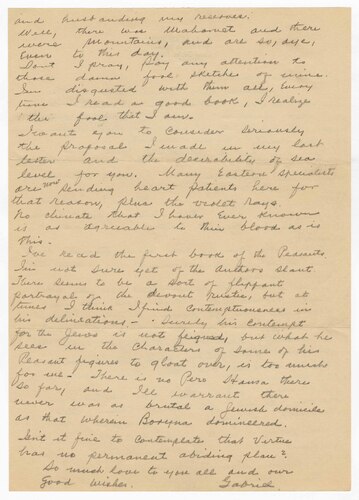 and husbanding my reserves.
Well, there was Mahomet and there
were mountains, and are so, aye,
Even to this day.
Don't I pray, pay any attention to
those damn fool sketches of mine.
I'm disgusted with them all, Every
time I read a good book, I realize
the fool that I am.
I want you to Consider seriously
the proposal I made in my last
letter and the desirability of sea
level for you. Many Eastern specialists
are now sending heart patients here for
that reason, plus the violet rays.
No climate that I have Ever Known
is as agreeable to thin blood as is
this.
I've read the first book of the Peasants.
I'm not sure yet of the Authors slant
There seems to be a sort of flippant
portrayal of the devout rustic, but at
times I think I find Contemptuousness in
his delineations - . Surely his contempt
for the Jews is not feigned, but what he
sees in the Characters of some of his
Peasant figures to gloat over, is too much
for me. There is no Pero Hansa there
so far, and I'll warrant there
never was as brutal a Jewish domicile
as that wherein Boryna domineered.
Isn't it fine to Contemplate that Virtue
has no permanent abiding place?
So much love to you all and our
good wishes. Gabriel